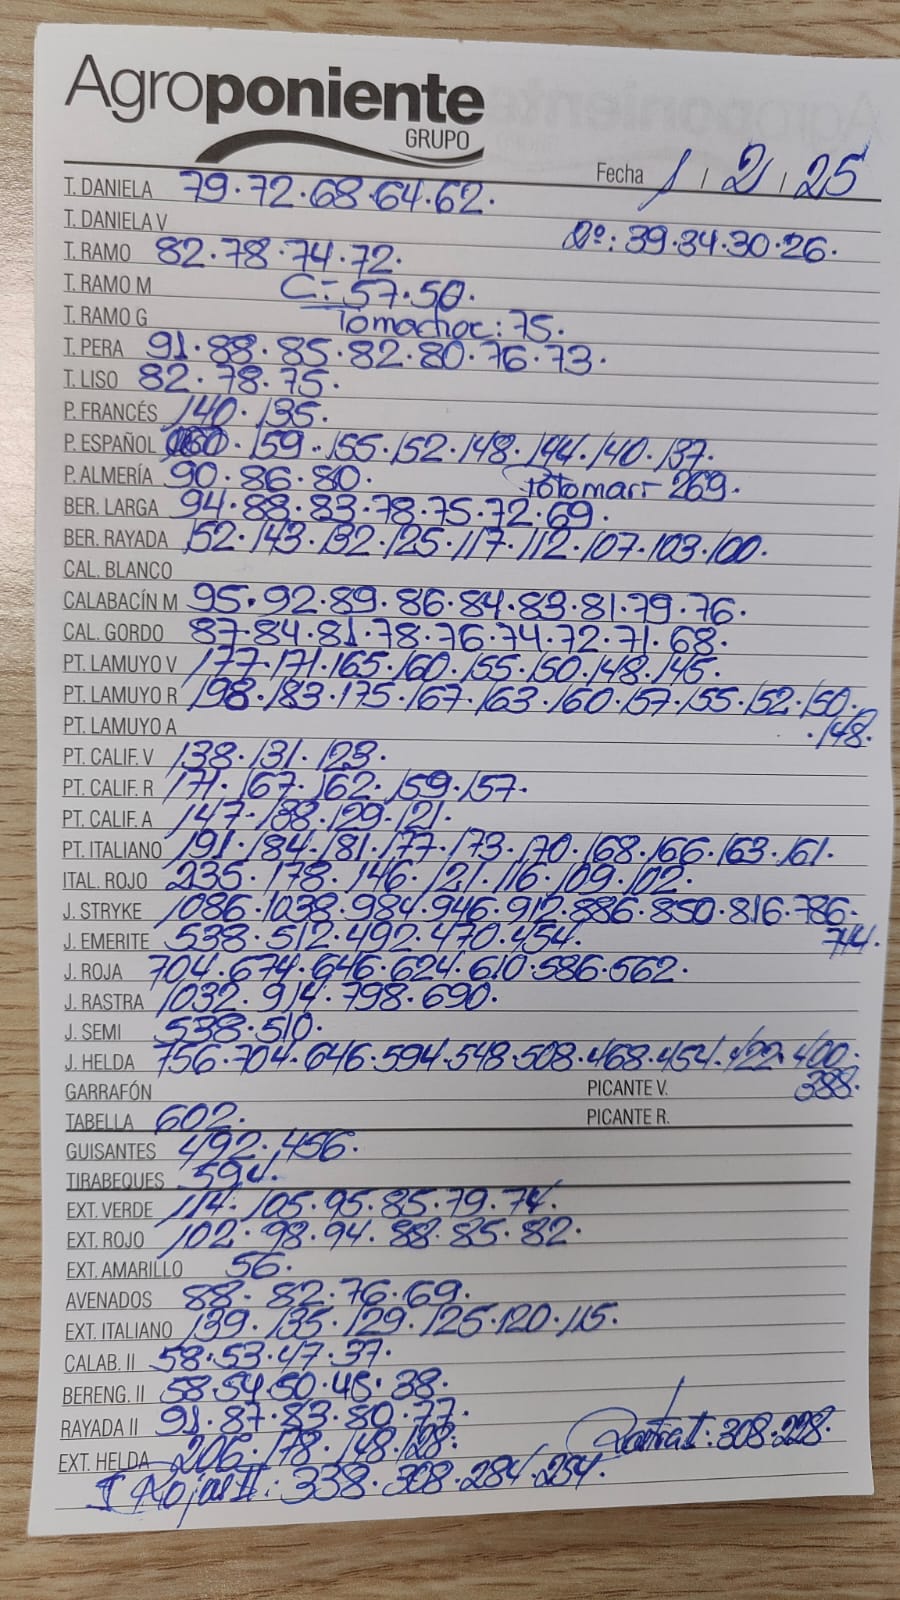 Agroponiente
GRUPO
Fecha 1 / 2 / 25
T. DANIELA 79.72.68.64.62.
T. DANELA V 2º: 39.34.30.26.
T. RAMO 82.78.74.72.
T. RAMO M C= 57.50.
T. RAMO G Tomachoc: 75.
T. PERA 91.88.85.82.80.76.73.
T. LISO 82.78.75.
P. FRANCÉS 140.135.
P. ESPAÑOL 160.159.155.152.148.144.140.137.
P. ALMERÍA 90.86.80. Totomarr 269.
BER. LARGA 94.88.83.78.75.72.69.
BER. RAYADA 152.143.132.125.117.112.107.103.100.
CAL. BLANCO
CALABACÍN M 95.92.89.86.84.83.81.79.76.
CAL. GORDO 87.84.81.78.76.74.72.71.68.
PT. LAMUYO V 177.171.165.160.155.150.148.145.
PT. LAMUYO R 198.183.175.167.163.160.157.155.152.150.
PT. LAMUYO A .148.
PT. CALIF. V 138.131.123.
PT. CALIF. R 171.167.162.159.157.
PT. CALIF. A 147.138.129.121.
PT. ITALIANO 191.184.181.177.173.170.168.166.163.161.
ITAL. ROJO 235.178.146.121.116.109.102.
J. STRYKE 1086.1038.984.946.912.886.850.816.786.
J. EMERITE 538.512.492.470.454. 744.
J. ROJA 704.674.646.624.610.586.562.
J. RASTRA 1032.914.798.690.
J. SEMI 538.510.
J. HELDA 756.704.646.594.548.508.468.454.422.400.
GARRAFÓN PICANTE V. 388.
TABELLA 602. PICANTE R.
GUISANTES 492.456.
TIRABEQUES 594.
EXT. VERDE 114.105.95.85.79.74.
EXT. ROJO 102.98.94.88.85.82.
EXT. AMARILLO 56.
AVENADOS 88.82.76.69.
EXT. ITALIANO 139.135.129.125.120.115.
CALAB. II 58.53.47.37.
BERENG. II 58.54.50.45.38.
RAYADA II 91.87.83.80.77.
EXT. HELDA 206.178.148.128. : 308.228.
Rojas II: 338.308.284.254.